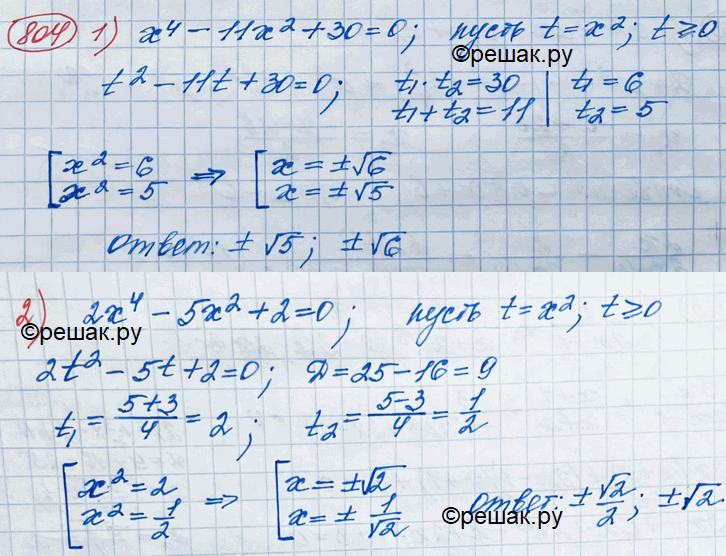 804 1) x⁴ − 11x² + 30 = 0; пусть t = x²; t ≥ 0
©решак.ру
t² − 11t + 30 = 0; t₁ · t₂ = 30 | t₁ = 6
t₁ + t₂ = 11 | t₂ = 5
[ x² = 6 ⇒ [ x = ±√6
x² = 5 x = ±√5
©решак.ру
ответ: ± √5; ± √6
2) 2x⁴ − 5x² + 2 = 0; пусть t = x²; t ≥ 0
©решак.ру
2t² − 5t + 2 = 0; Д = 25 − 16 = 9
t₁ = (5+3)/4 = 2; t₂ = (5−3)/4 = 1/2
[ x² = 2 ⇒ [ x = ±√2 ответ: ± √2/2; ±√2
x² = 1/2 x = ± 1/√2
©решак.ру